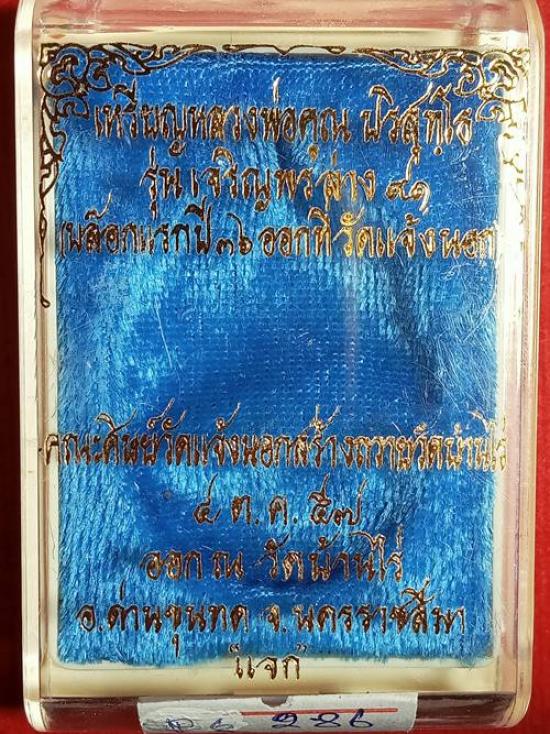 เหรียญหลวงพ่อคูณ ปริสุทฺโธ
รุ่น เจริญพรล่าง ๙๑
(บล๊อกแรกปี ๓๖ ออกที่วัดแจ้งนอก)
คณะศิษย์วัดแจ้งนอกสร้างถวายวัดบ้านไร่
�4 ต.ค. ๕๗
ออก ณ วัดบ้านไร่
อ.ด่านขุนทด จ.นครราชสีมา
"แจก"
286